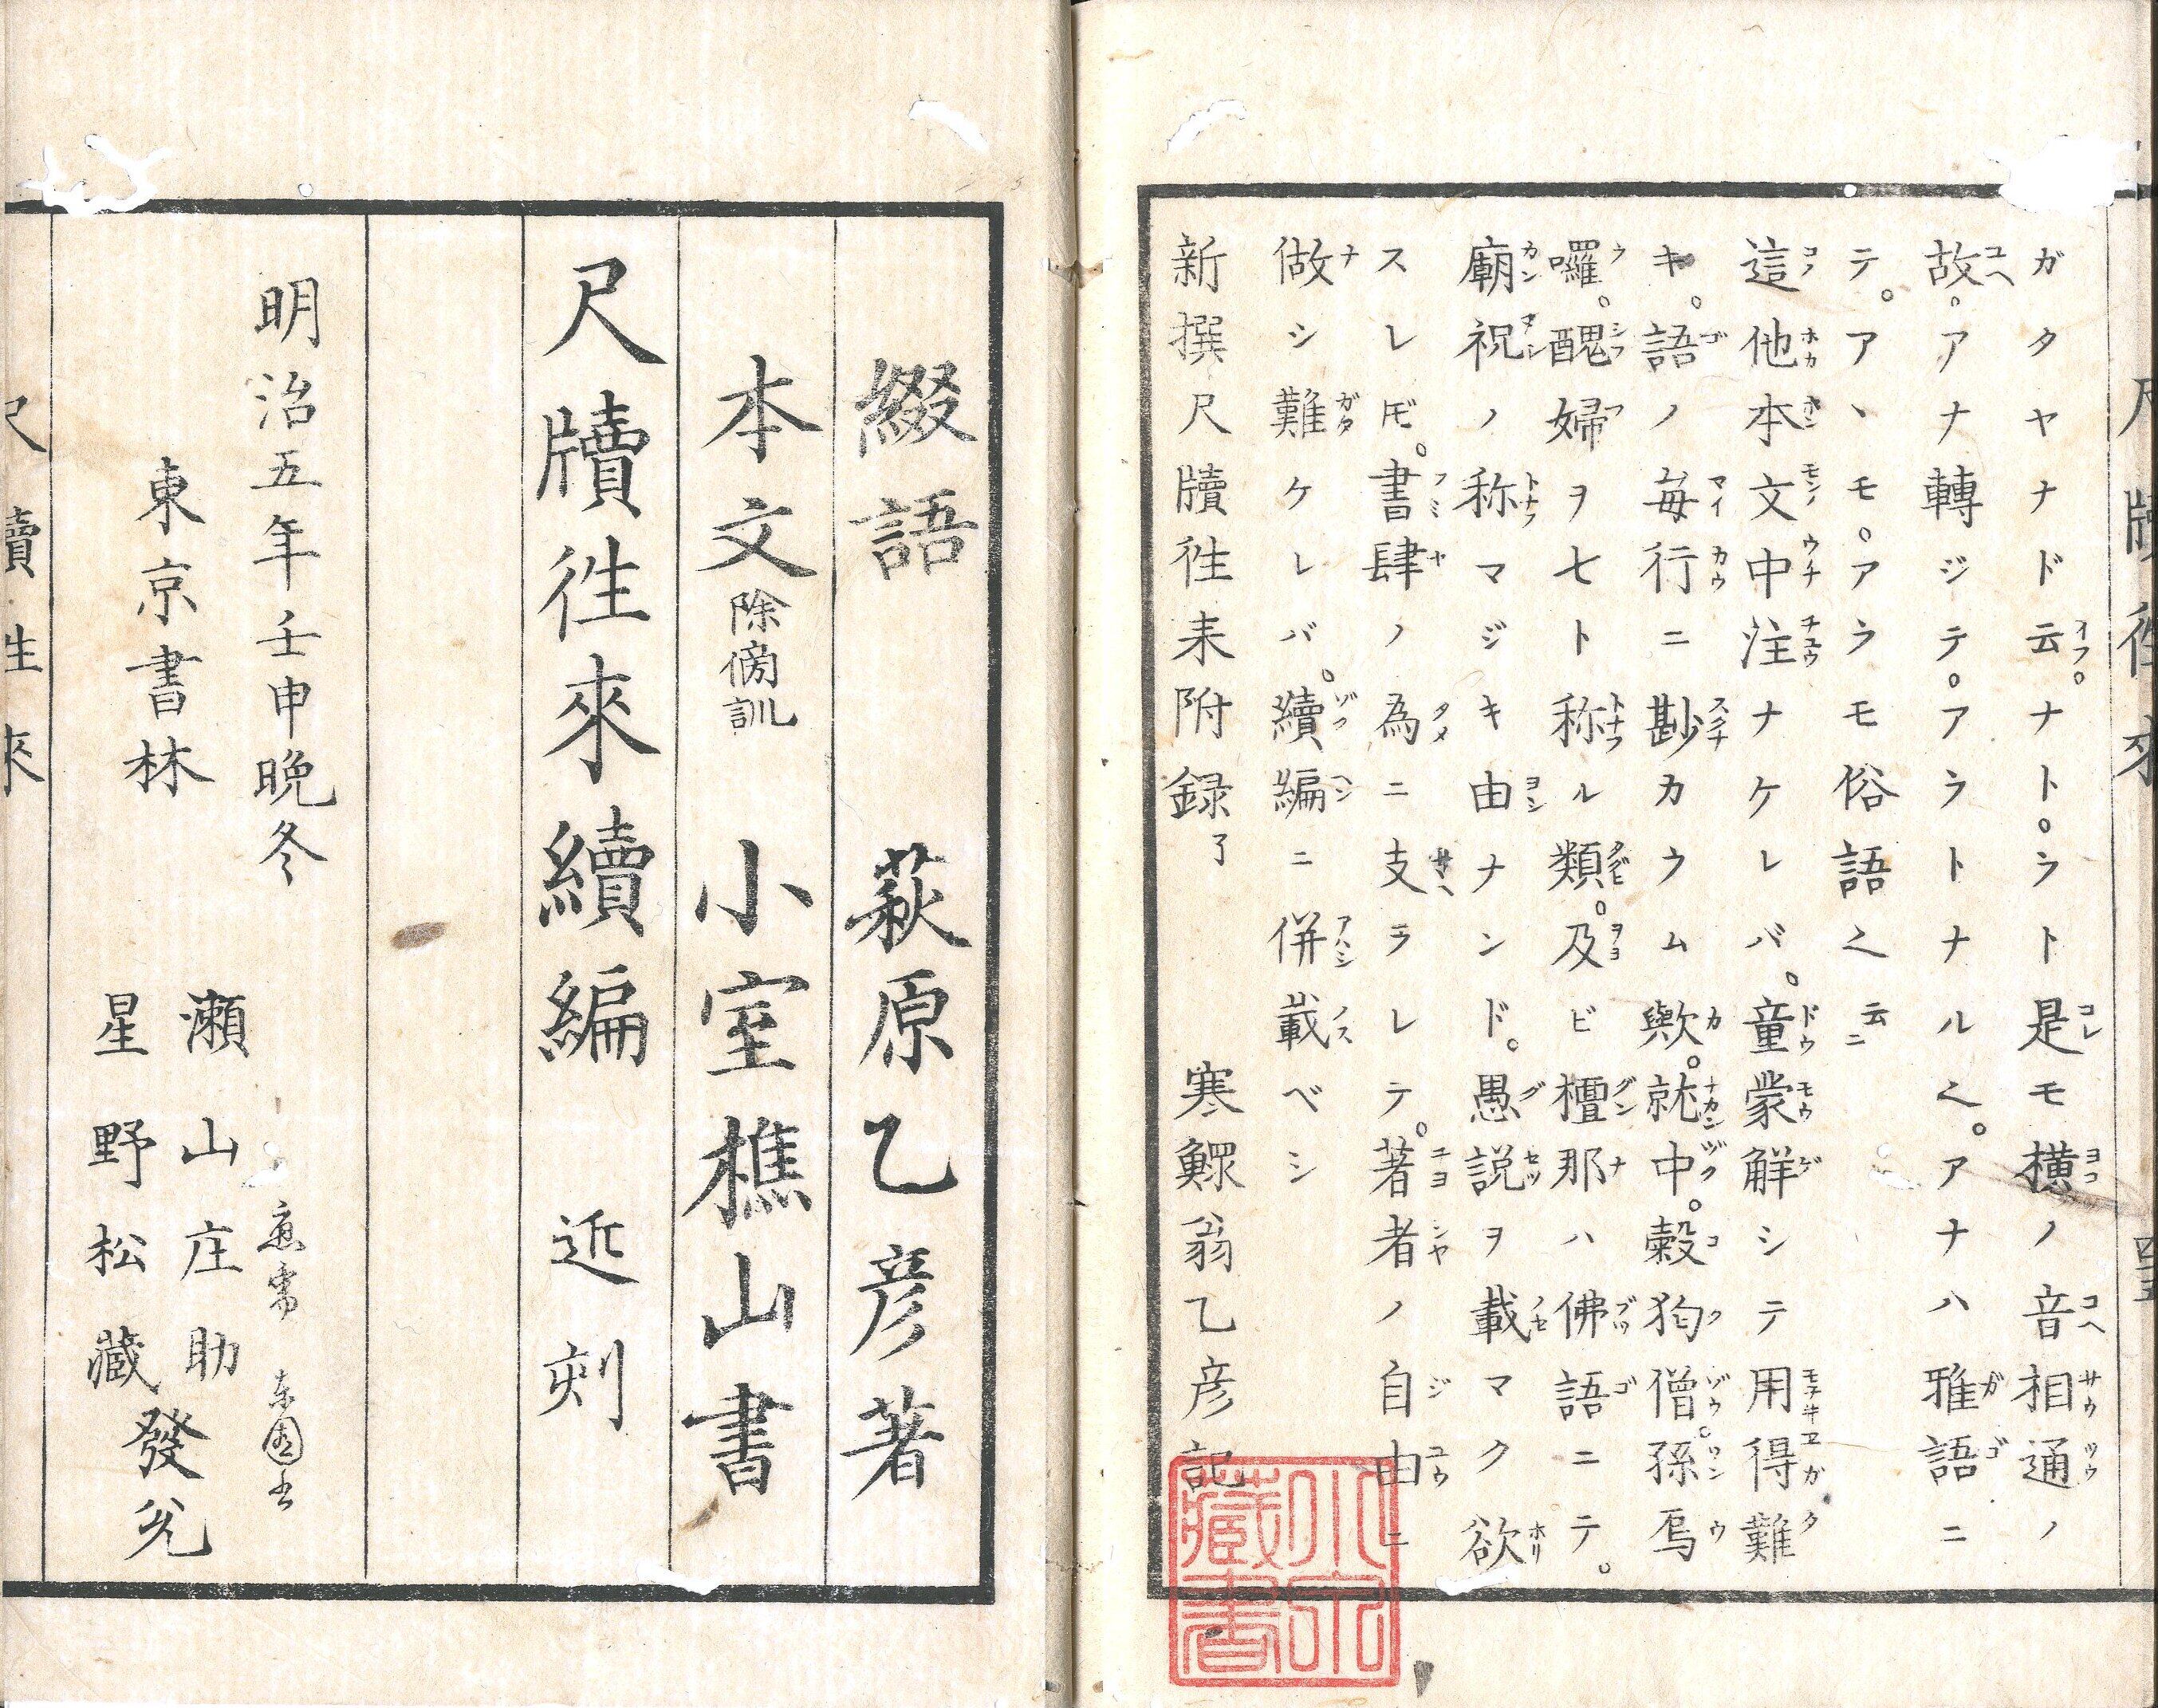 ガタヤナナド云。ナト。ウト是モ横ノ音相通ノ
故。アナ轉ジテ。アウトナルく。アナハ雅語ニ
テ。アヽモ。アウモ俗語く云ニ
這他本文中注ナケレバ。童蒙解シテ用得難
キ。語ノ毎行ニ尠カウム歟。就中。穀狗僧。孫焉
囉。醜婦ヲ七ト称ル類。及ビ檀那ハ佛語ニテ。
廟祝ノ称マジキ由ナンド。愚説ヲ載マク欲
スレ𪜈。書肆ノ為ニ支ラレテ。著者ノ自由ニ
做シ難ケレバ。續編ニ併載ベシ
新撰尺牘徃来附録了 寒鰥翁乙彦記
綴語 萩原乙彦著
本文除傍訓 小室樵山書
尺牘徃來續編 近刻
明治五年壬申晩冬
東京書林
瀬山庄助
星野松藏
發兌